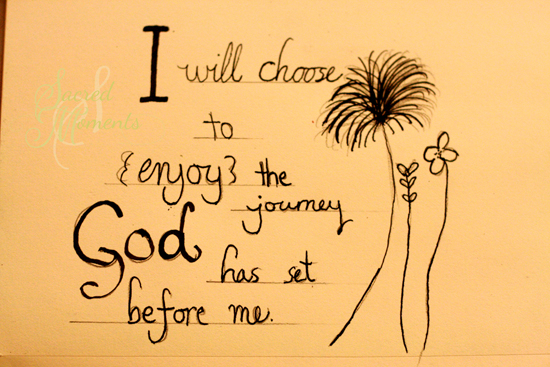 I will choose
to
{enjoy} the
journey
God has set
before me.
Sacred
&
Moments